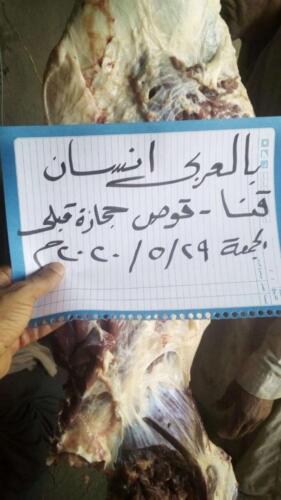 بالعربى انسان
قنا - قوص حجازة قبلى
الجمعة ٢٩/٥/٢٠٢٠م